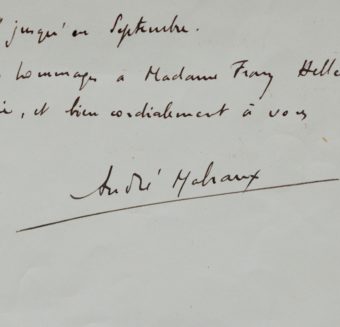 jusqu'en Septembre.
hommages à Madame Franz Helle
et bien cordialement à vous
André Malraux